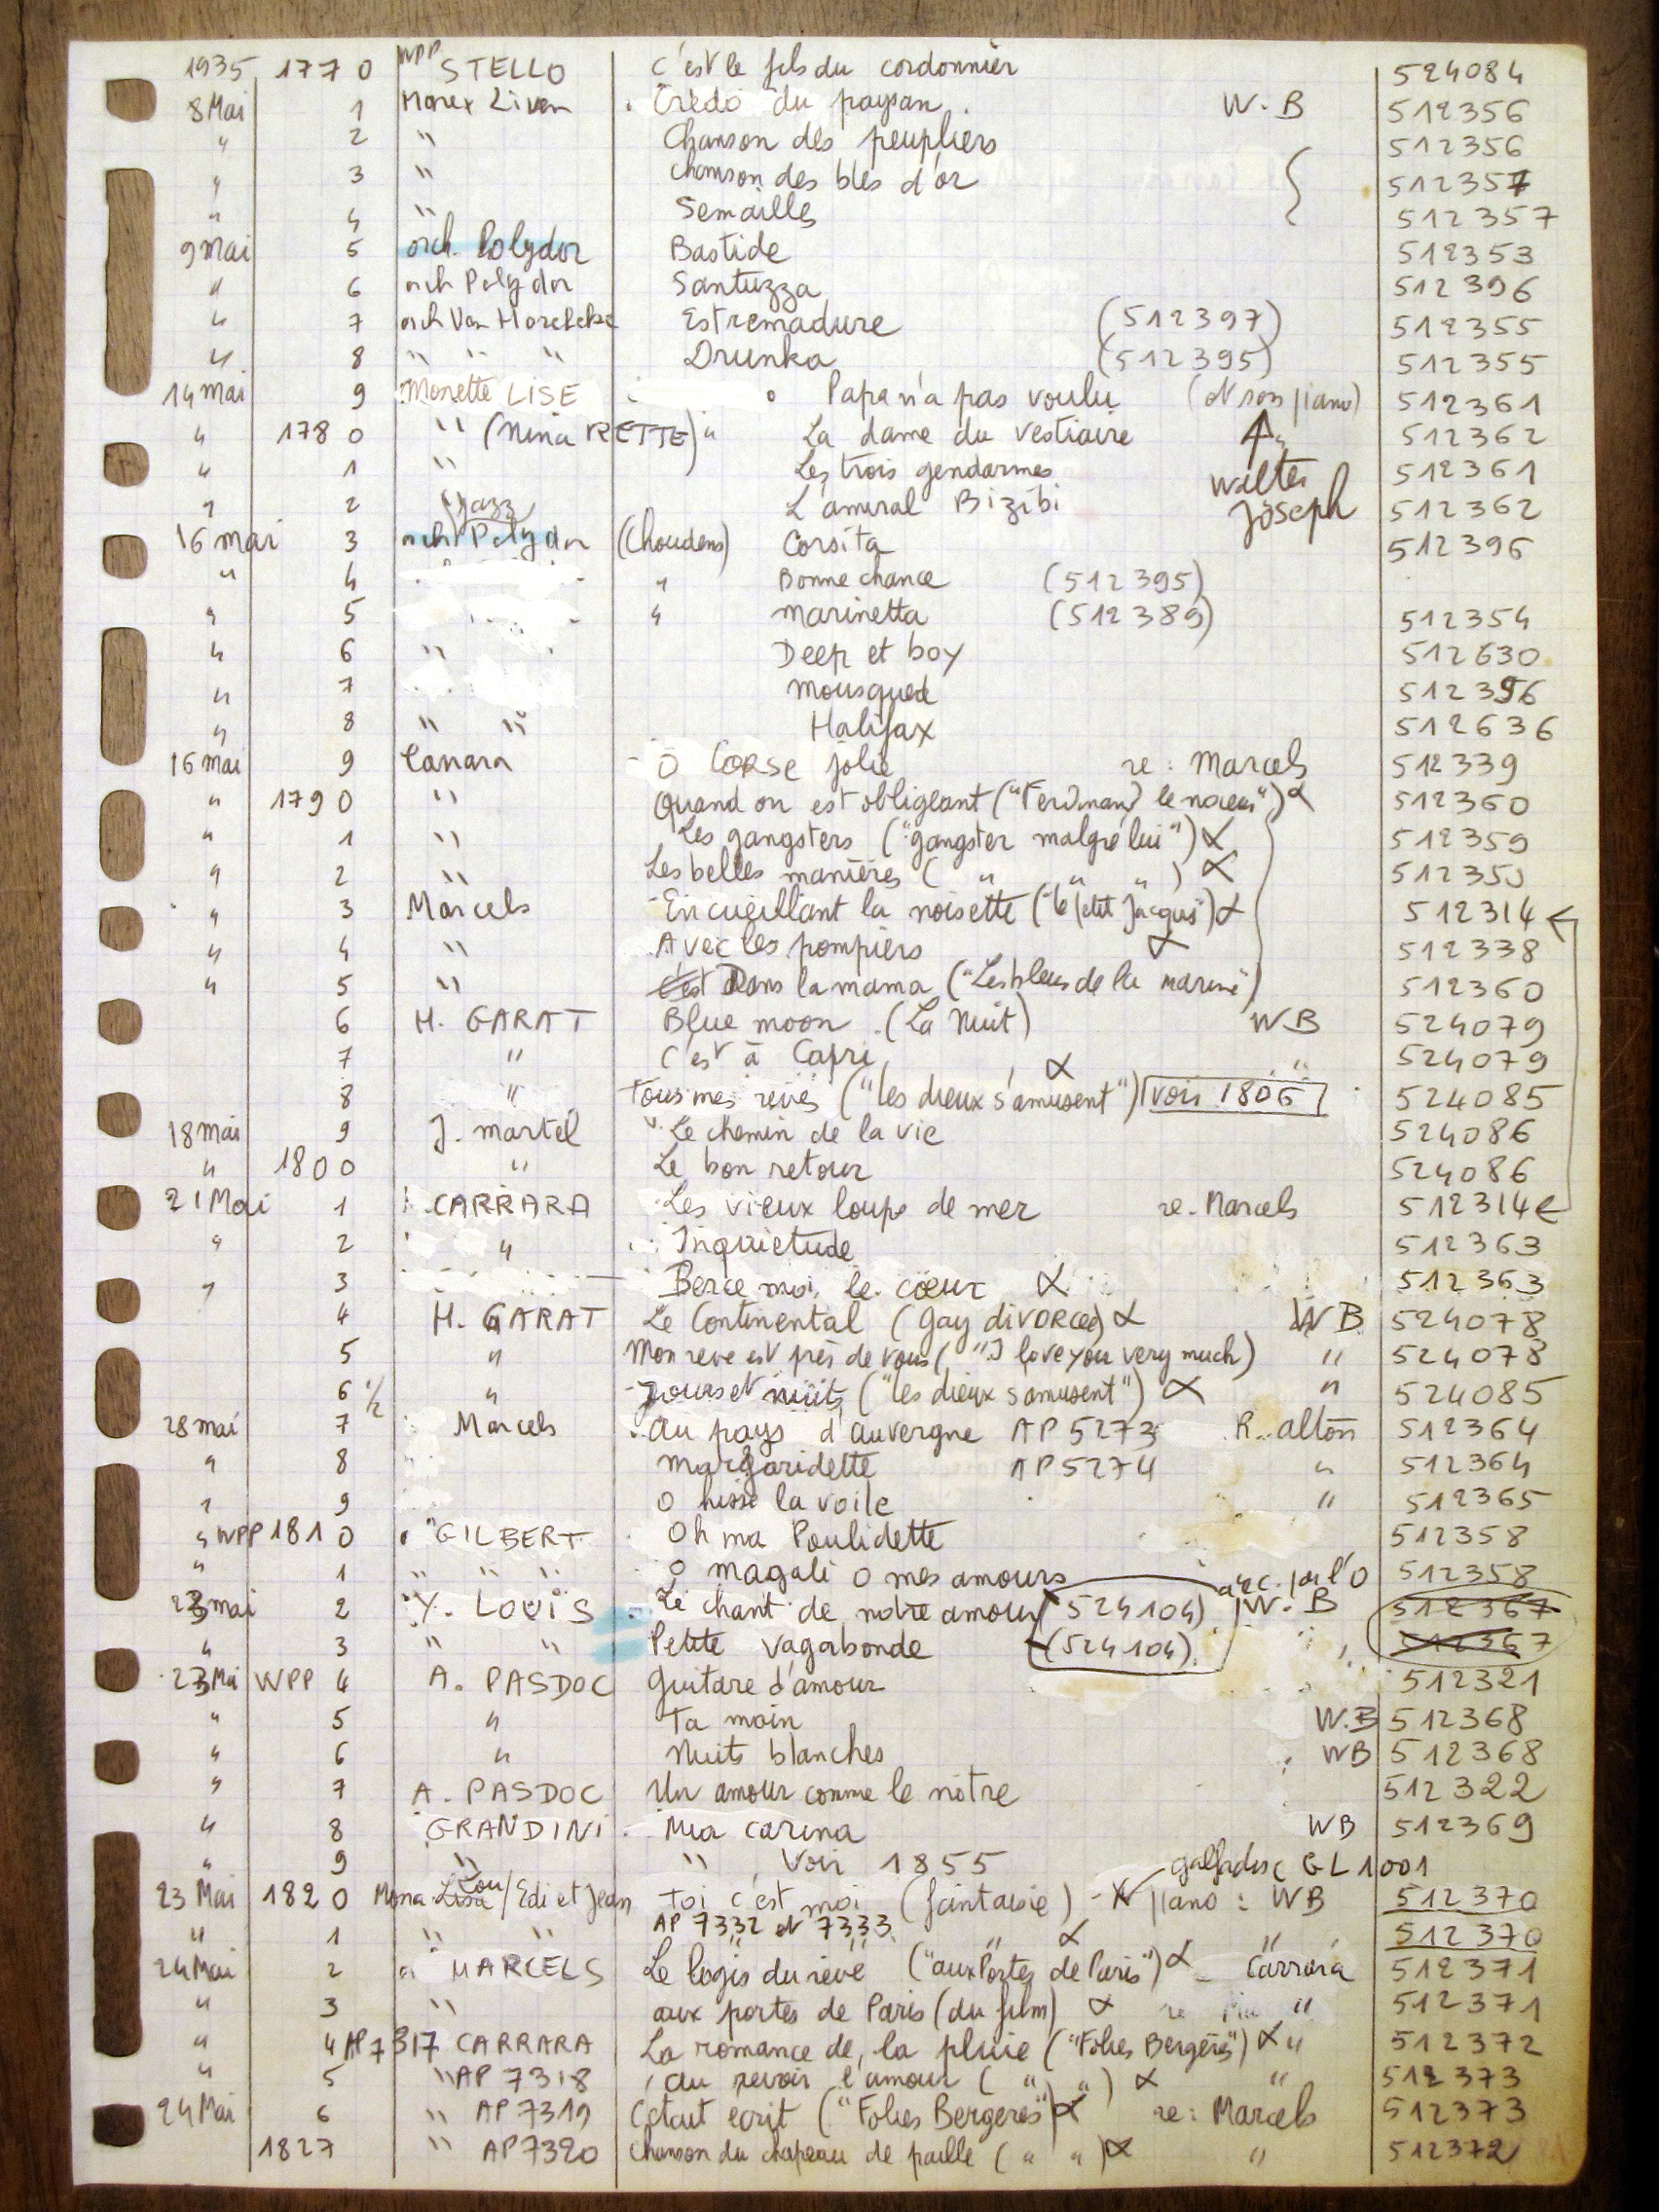 1935 1770 WPP STELLO c'est le fils du cordonnier 524084
8 Mai 1 Morex Liven Crédo du paysan. W. B 512356
" 2 " Chanson des peupliers 512356
" 3 " chanson des blés d'or 512357
" 4 " Semailles 512357
9 Mai 5 orch. Polydor Bastide 512353
" 6 orch Polydor Santuzza 512396
" 7 orch Van Estremadure (512397) 512355
" 8 " " " Drunka (512395) 512355
14 Mai 9 Monette LISE Papa n'a pas voulu (et son piano) 512361
" 1780 " (Nina RETTE) " La dame du vestiaire 512362
" 1 " Les trois gendarmes Walter 512361
" 2 " jazz L'amiral Bizibi Joseph 512362
16 mai 3 orch Polydor (Choudens) Corsita 512396
" 4 " Bonne chance (512395)
" 5 " marinetta (512389) 512354
" 6 " Deep et boy 512630
" 7 Mousquet 512396
" 8 " " Halifax 512636
16 mai 9 Carrara O Corse jolie re : Marcels 512339
" 1790 " Quand on est obligeant ("Ferdinand le noceur") α 512360
" 1 " Les gangsters ("gangster malgré lui") α 512359
" 2 " Les belles manières ( " " " ) α 512359
" 3 Marcels En cueillant la noisette ("le petit Jacques") α 512314
" 4 " Avec les pompiers α 512338
" 5 " c'est Dans la mama ("Les bleus de la marine") 512360
6 H. GARAT Blue moon. (La Nuit) WB 524079
7 " C'est à Capri " 524079
8 " Tous mes rêves ("les dieux s'amusent") α voir 1806 524085
18 mai 9 J. martel Le chemin de la vie 524086
" 1800 " Le bon retour 524086
21 Mai 1 CARRARA Les vieux loups de mer re. Marcels 512314
" 2 " Inquietude 512363
" 3 Berce moi le coeur α 512363
4 H. GARAT Le Continental (gay divorcee) α WB 524078
5 " Mon reve est près de vous ("I love you very much) " 524078
6 1/2 " Jours et nuits ("les dieux s'amusent") α " 524085
28 mai 7 Marcels Au pays d'auvergne AP 5273 R. alton 512364
" 8 margaridette AP 5274 " 512364
" 9 O hisse la voile " 512365
" WPP 1810 " GILBERT Oh ma Poulidette 512358
" 1 " " " O magali o mes amours 512358
23 mai 2 Y. LOUIS Le chant de notre amour (524104) acc. par l'O W. B 512367
" 3 " " Petite vagabonde (524104) " 512367
23 Mai WPP 4 A. PASDOC guitare d'amour 512321
" 5 " Ta main W.B 512368
" 6 " Nuits blanches WB 512368
" 7 A. PASDOC Un amour comme le nôtre 512322
" 8 GRANDINI Mia carina WB 512369
" 9 " " Voir 1855 galfadisc GL 1001
23 Mai 1820 Mona Lisa Lou / Edi et Jean Toi c'est moi (fantaisie) - piano : WB 512370
" 1 " " AP 7332 et 7333 " α " 512370
24 Mai 2 MARCELS Le logis du rêve ("aux Portes de Paris") α Carrara 512371
" 3 " aux portes de Paris (du film) α re " 512371
" 4 AP 7317 CARRARA La romance de la pluie ("Folies Bergères") α " 512372
" 5 " AP 7318 Au revoir l'amour ( " " ) α " 512373
24 Mai 6 " AP 7319 C'etait ecrit ("Folies Bergeres") α re : Marcels 512373
1827 " AP 7320 Chanson du chapeau de paille ( " " ) α " 512372